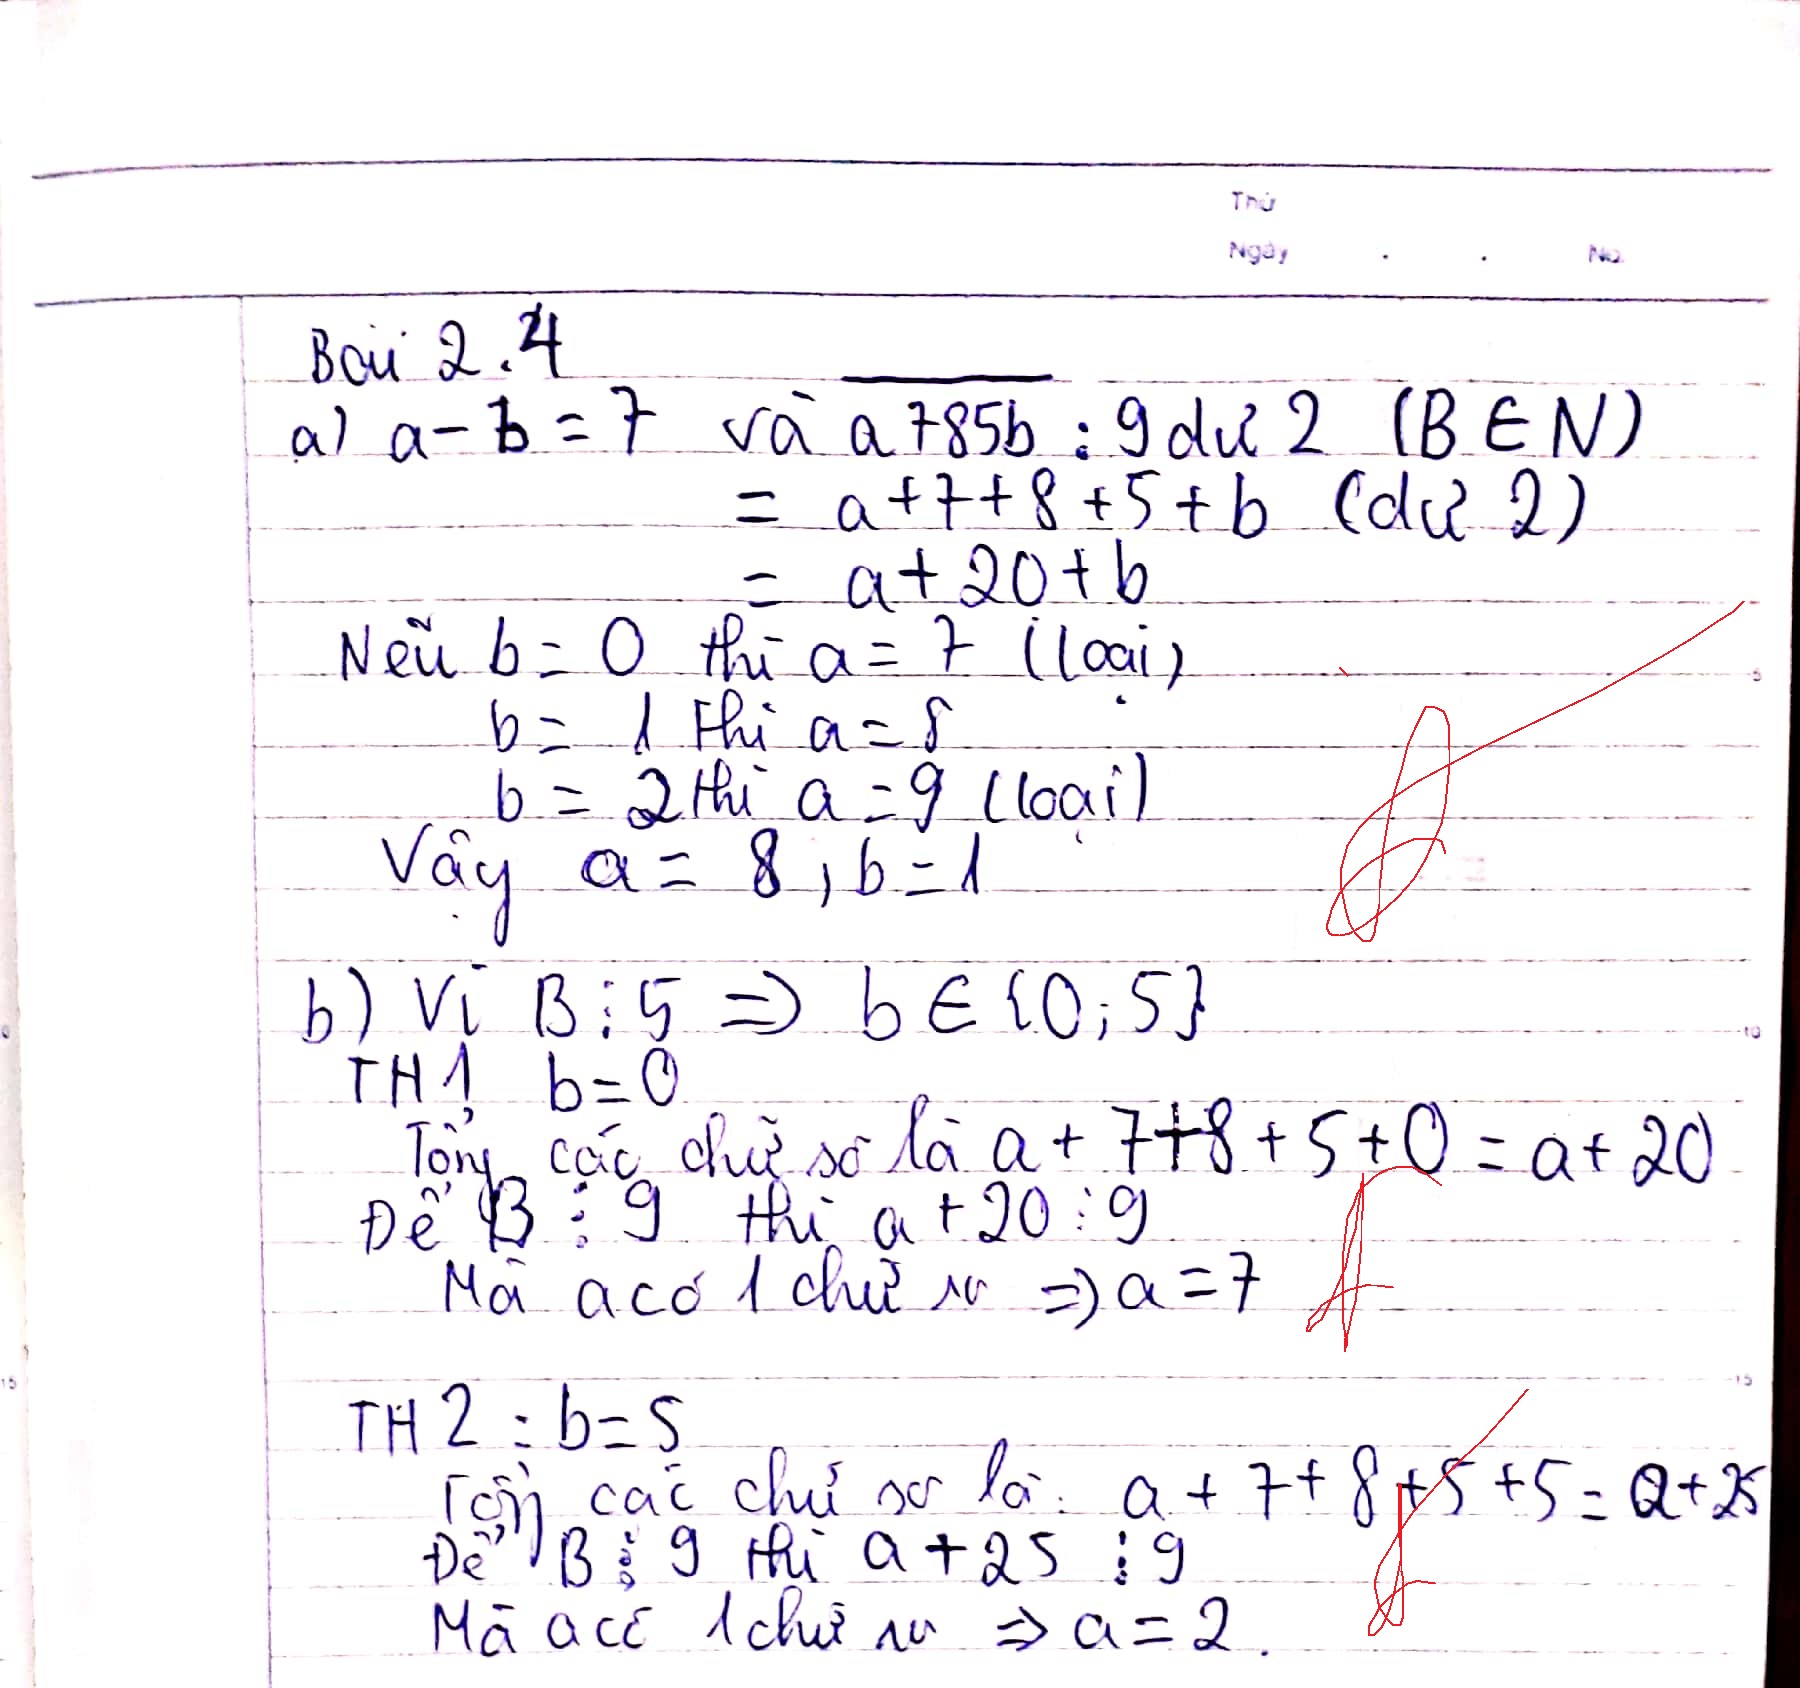 Thứ
Ngày . . No.
Bài 2.4
a) a - b = 7 và a785b : 9 dư 2 (B ∈ N)
= a + 7 + 8 + 5 + b (dư 2)
= a + 20 + b
Nếu b = 0 thì a = 7 (loại)
b = 1 thì a = 8
b = 2 thì a = 9 (loại)
Vậy a = 8, b = 1
b) Vì B ⋮ 5 => b ∈ {0; 5}
TH1 b = 0
Tổng các chữ số là a + 7 + 8 + 5 + 0 = a + 20
Để B ⋮ 9 thì a + 20 ⋮ 9
Mà a có 1 chữ số => a = 7
TH2 : b = 5
Tổng các chữ số là: a + 7 + 8 + 5 + 5 = a + 25
Để B ⋮ 9 thì a + 25 ⋮ 9
Mà a có 1 chữ số => a = 2.
5
10
15
15